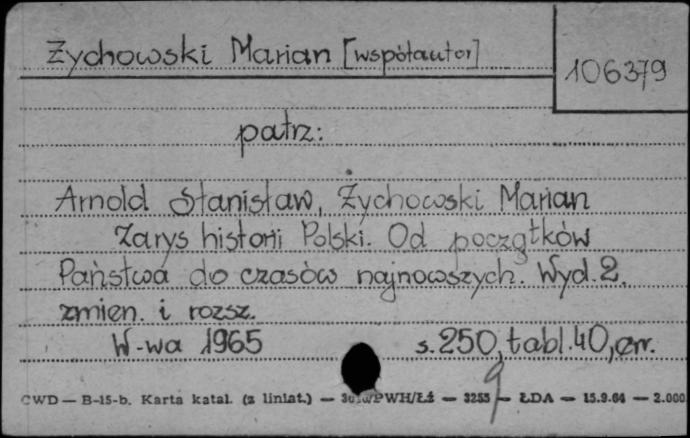 Żychowski Marian [współautor]
106379
patrz:
Arnold Stanisław, Żychowski Marian
Zarys historii Polski. Od początków
Państwa do czasów najnowszych. Wyd. 2.
zmien. i rozsz.
W-wa 1965 s. 250, tabl. 40, err.
CWD — B-15-b. Karta katal. (z liniat.) — PWH/Łź — 3255 — ŁDA — 15.9.64 — 2.000